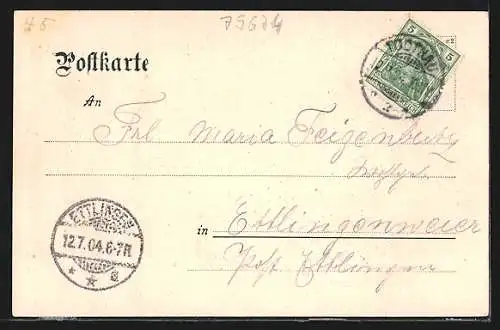 45
79674
Postkarte
5 5
TODTNAU
An
Frl. Maria Feigenbutz
in Ettlingenweier
Post Ettlingen
ETTLINGEN
12.7.04.6-7N
* * a